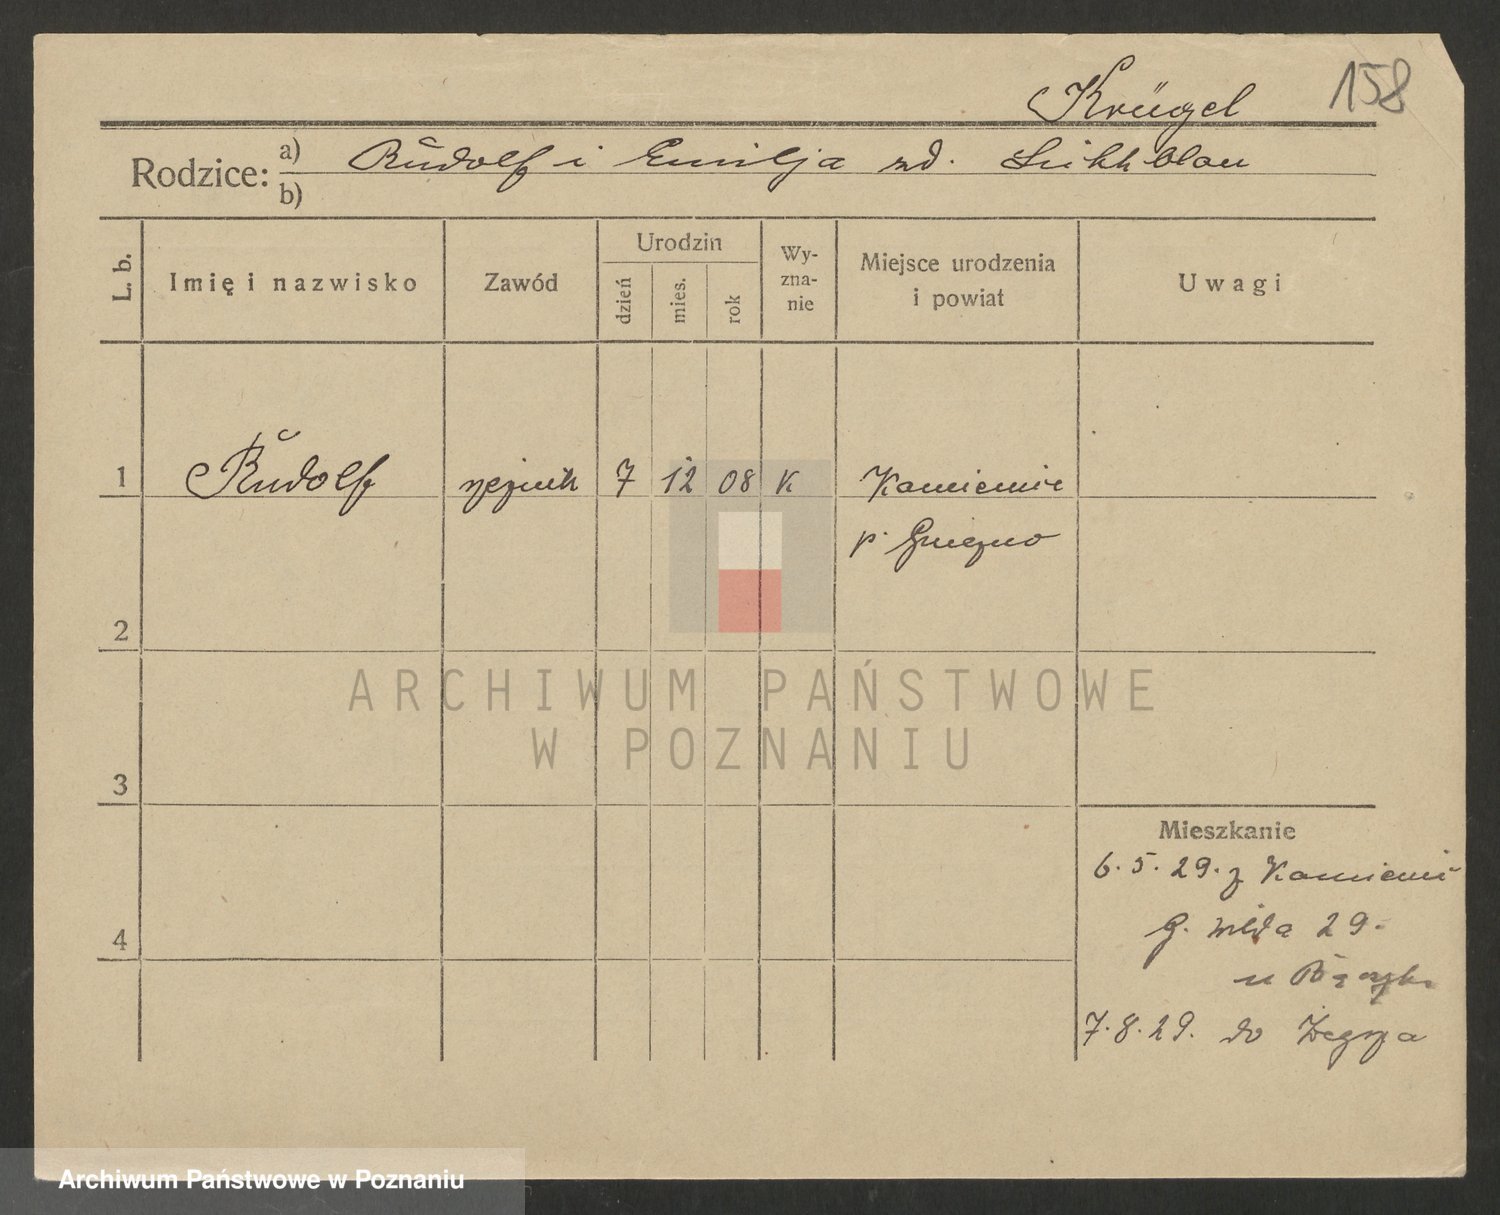 Krügel 158
Rodzice: a) Rudolf i Emilja zd.
b)
L. b. Imię i nazwisko Zawód Urodzin Wy-zna-nie Miejsce urodzenia i powiat Uwagi
dzień mies. rok
1 Rudolf 7 12 08 K Kamieniec
p. Gniezno
2
ARCHIWUM PAŃSTWOWE
W POZNANIU
3
Mieszkanie
6.5.29. z Kamieniec
4 G. Wilda 29.
u
7.8.29. do Zegrza
Archiwum Państwowe w Poznaniu